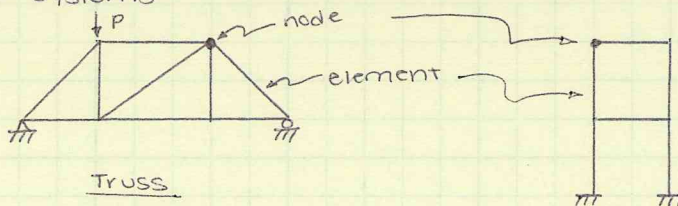 P
node
element
Truss